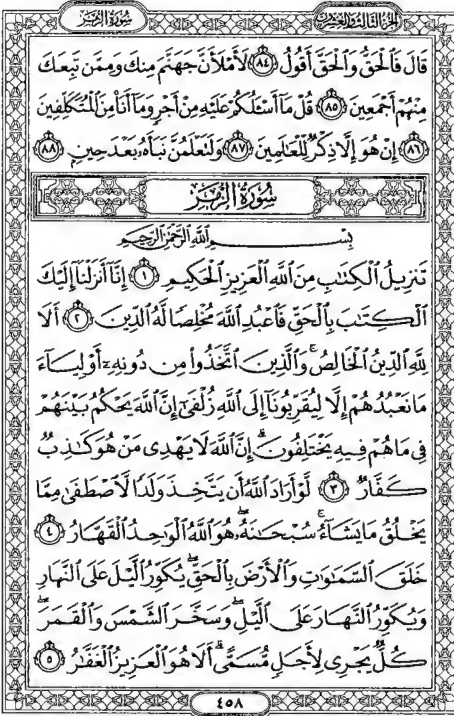 الجزء الثالث والعشرون
سورة الزمر
قَالَ فَالْحَقُّ وَالْحَقَّ أَقُولُ ٨٤ لَأَمْلَأَنَّ جَهَنَّمَ مِنكَ وَمِمَّن تَبِعَكَ
مِنْهُمْ أَجْمَعِينَ ٨٥ قُلْ مَا أَسْـَٔلُكُمْ عَلَيْهِ مِنْ أَجْرٍ وَمَا أَنَا۠ مِنَ الْمُتَكَلِّفِينَ
٨٦ إِنْ هُوَ إِلَّا ذِكْرٌ لِّلْعَـٰلَمِينَ ٨٧ وَلَتَعْلَمُنَّ نَبَأَهُۥ بَعْدَ حِينٍۭ ٨٨
سُورَةُ الزُّمَرِ
بِسْمِ اللَّهِ الرَّحْمَـٰنِ الرَّحِيمِ
تَنزِيلُ الْكِتَـٰبِ مِنَ اللَّهِ الْعَزِيزِ الْحَكِيمِ ١ إِنَّا أَنزَلْنَا إِلَيْكَ
الْكِتَـٰبَ بِالْحَقِّ فَاعْبُدِ اللَّهَ مُخْلِصًا لَّهُ الدِّينَ ٢ أَلَا
لِلَّهِ الدِّينُ الْخَالِصُ ۚ وَالَّذِينَ اتَّخَذُوا۟ مِن دُونِهِۦ أَوْلِيَآءَ
مَا نَعْبُدُهُمْ إِلَّا لِيُقَرِّبُونَآ إِلَى اللَّهِ زُلْفَىٰٓ إِنَّ اللَّهَ يَحْكُمُ بَيْنَهُمْ
فِى مَا هُمْ فِيهِ يَخْتَلِفُونَ ۗ إِنَّ اللَّهَ لَا يَهْدِى مَنْ هُوَ كَـٰذِبٌ
كَفَّارٌ ٣ لَّوْ أَرَادَ اللَّهُ أَن يَتَّخِذَ وَلَدًا لَّاصْطَفَىٰ مِمَّا
يَخْلُقُ مَا يَشَآءُ ۚ سُبْحَـٰنَهُۥ ۖ هُوَ اللَّهُ الْوَٰحِدُ الْقَهَّارُ ٤
خَلَقَ السَّمَـٰوَٰتِ وَالْأَرْضَ بِالْحَقِّ ۖ يُكَوِّرُ الَّيْلَ عَلَى النَّهَارِ
وَيُكَوِّرُ النَّهَارَ عَلَى الَّيْلِ ۖ وَسَخَّرَ الشَّمْسَ وَالْقَمَرَ ۖ
كُلٌّ يَجْرِى لِأَجَلٍ مُّسَمًّى ۗ أَلَا هُوَ الْعَزِيزُ الْغَفَّـٰرُ ٥
٤٥٨